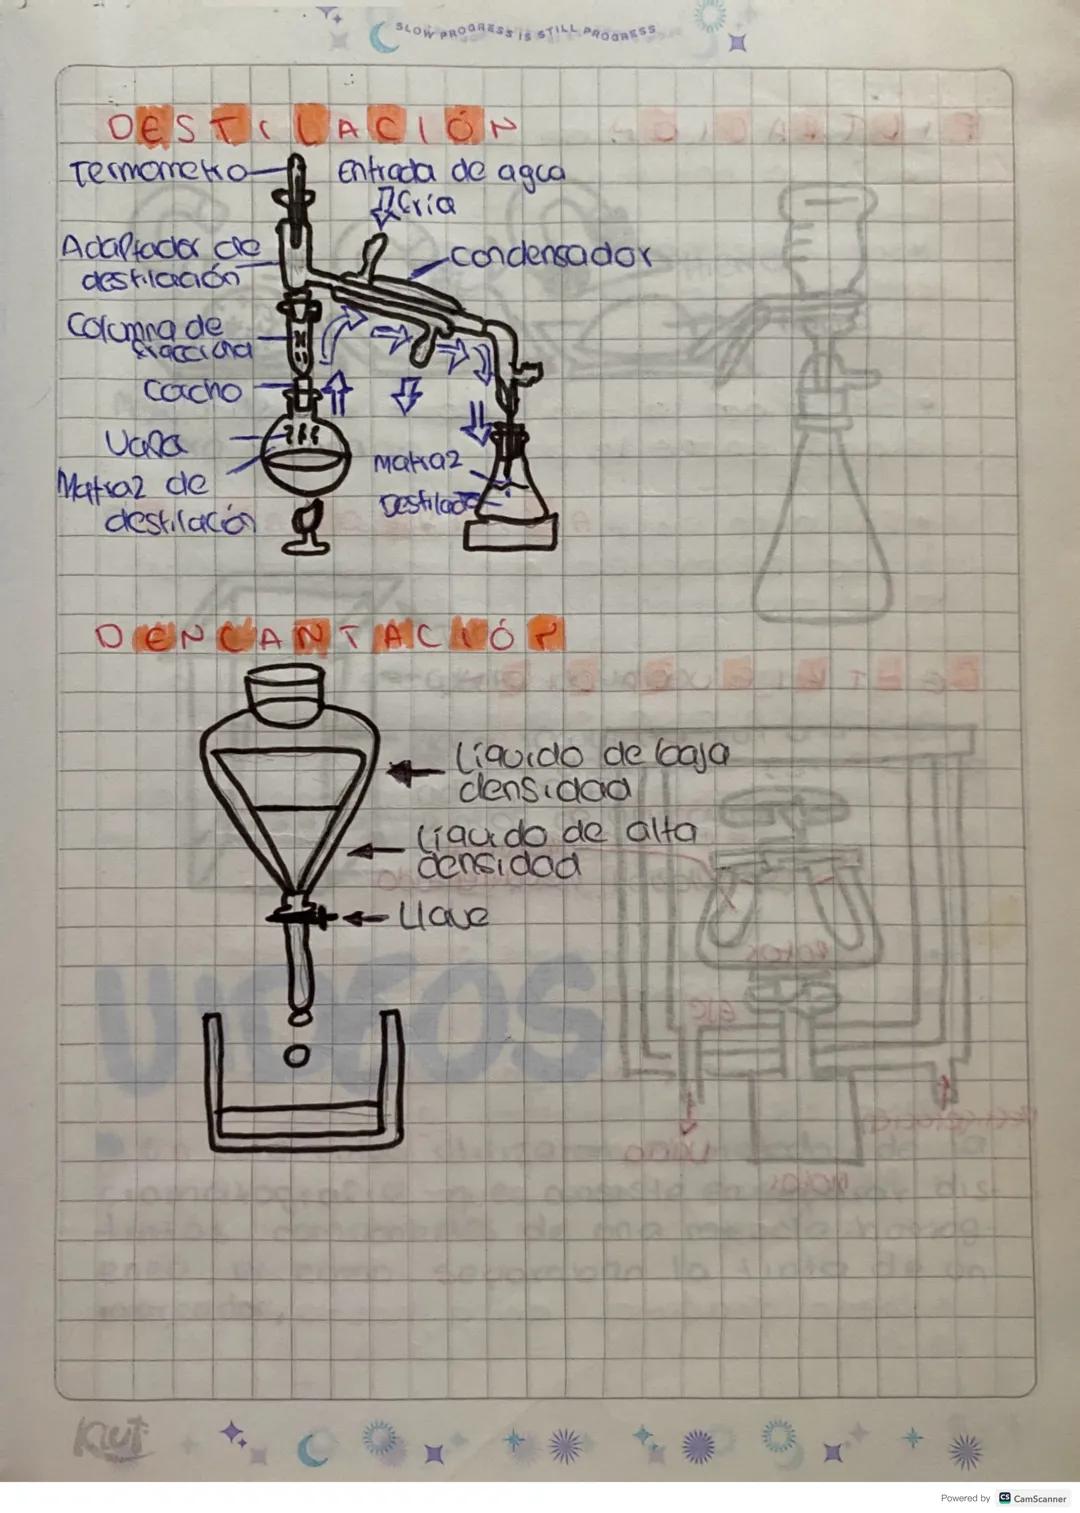 SLOW PROGRESS IS STILL PROGRESS
DESTILACIÓN
Termometro
Entrada de agua
fría
Adaptador de
destilación
condensador
Columna de
fracciona
Corcho
Matraz de
destilación
matraz
Destilado
DENCANTACIÓN
Líquido de baja
densidad
Líquido de alta
densidad
Llave
Kiut
Powered by CS CamScanner